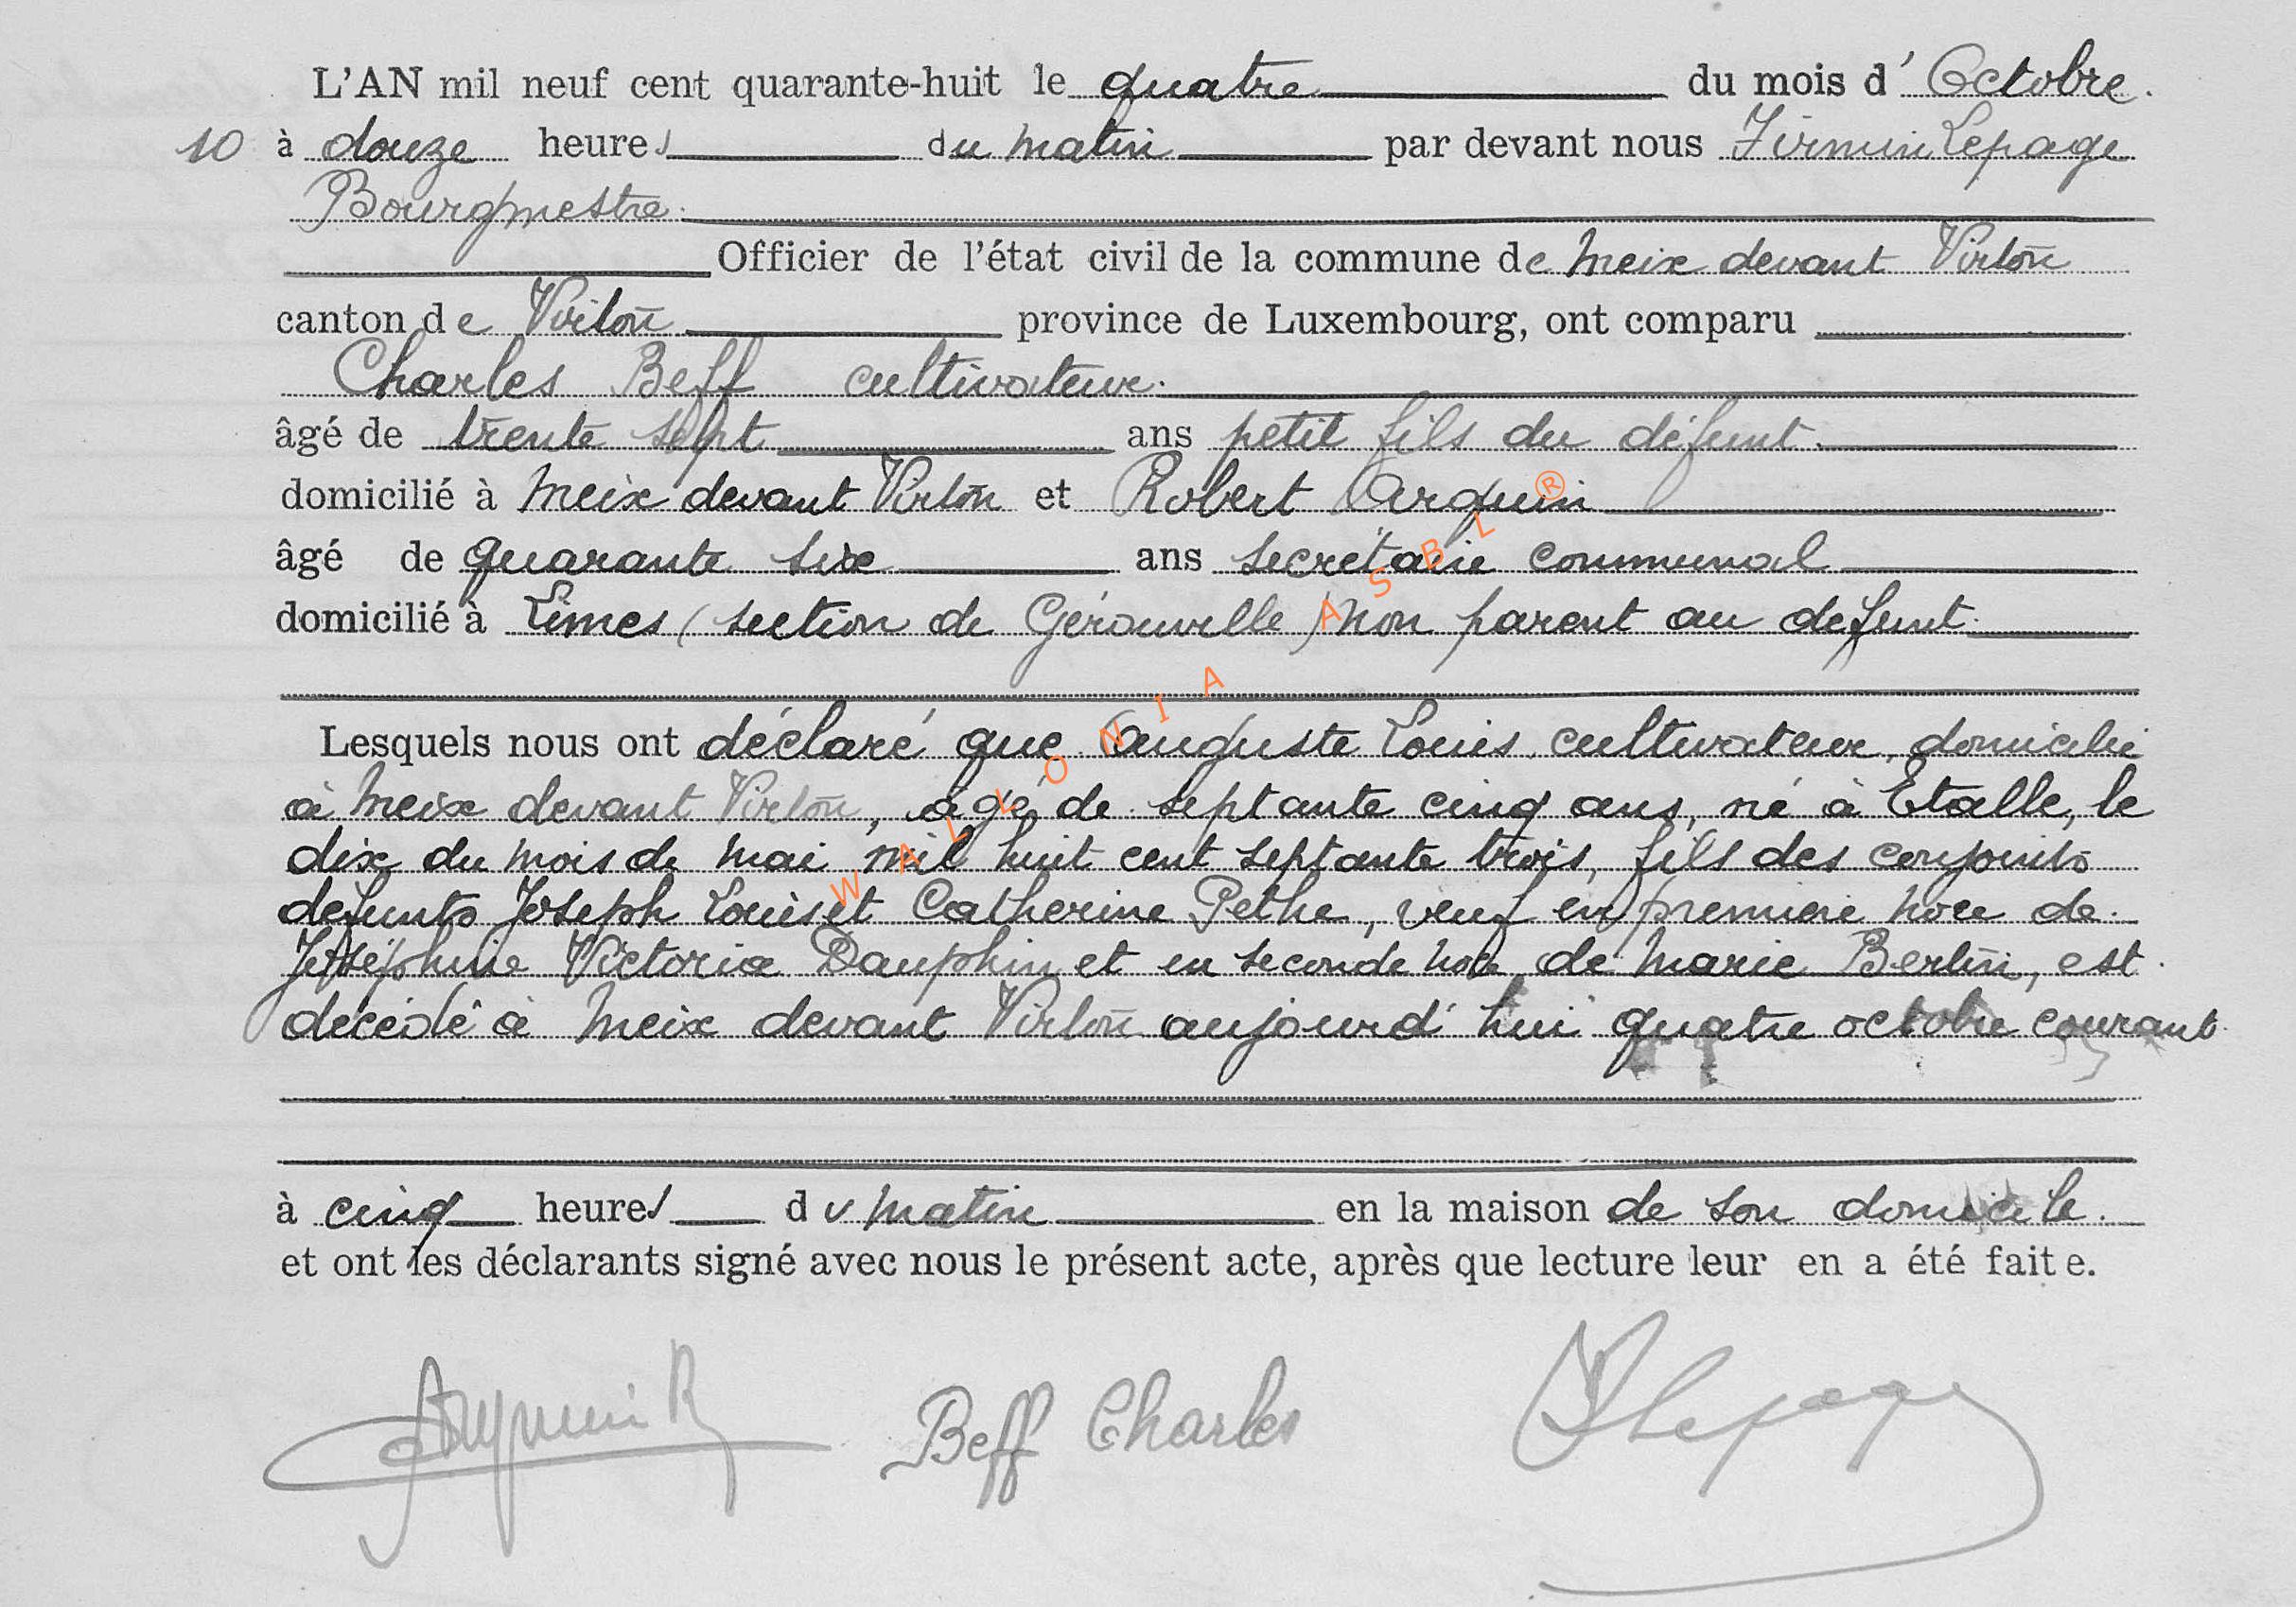 L'AN mil neuf cent quarante-huit le quatre du mois d' Octobre.
10 à douze heures du matin par devant nous Firmin Lepage
Bourgmestre.
Officier de l'état civil de la commune de Meix devant Virton
canton de Virton province de Luxembourg, ont comparu
Charles Beff cultivateur.
âgé de trente sept ans petit fils du défunt.
domicilié à Meix devant Virton et Robert Arquin
âgé de quarante six ans secrétaire communal
domicilié à Limes (section de Gérouville) non parent au defunt.
Lesquels nous ont déclaré que Auguste Louis, cultivateur, domicilié
à Meix devant Virton, âgé de septante cinq ans, né à Etalle, le
dix du mois de mai mil huit cent septante trois, fils des conjoints
defunts Joseph Louis et Catherine Pethe, veuf en premiere noce de
Joséphine Victoria Dauphin et en seconde noce de Marie Bertin, est
décédé à Meix devant Virton aujourd'hui quatre octobre courant
à cinq heures du matin en la maison de son domicile.
et ont les déclarants signé avec nous le présent acte, après que lecture leur en a été faite.
Arquin R Beff Charles F Lepage
WALLONIA ASBL ®